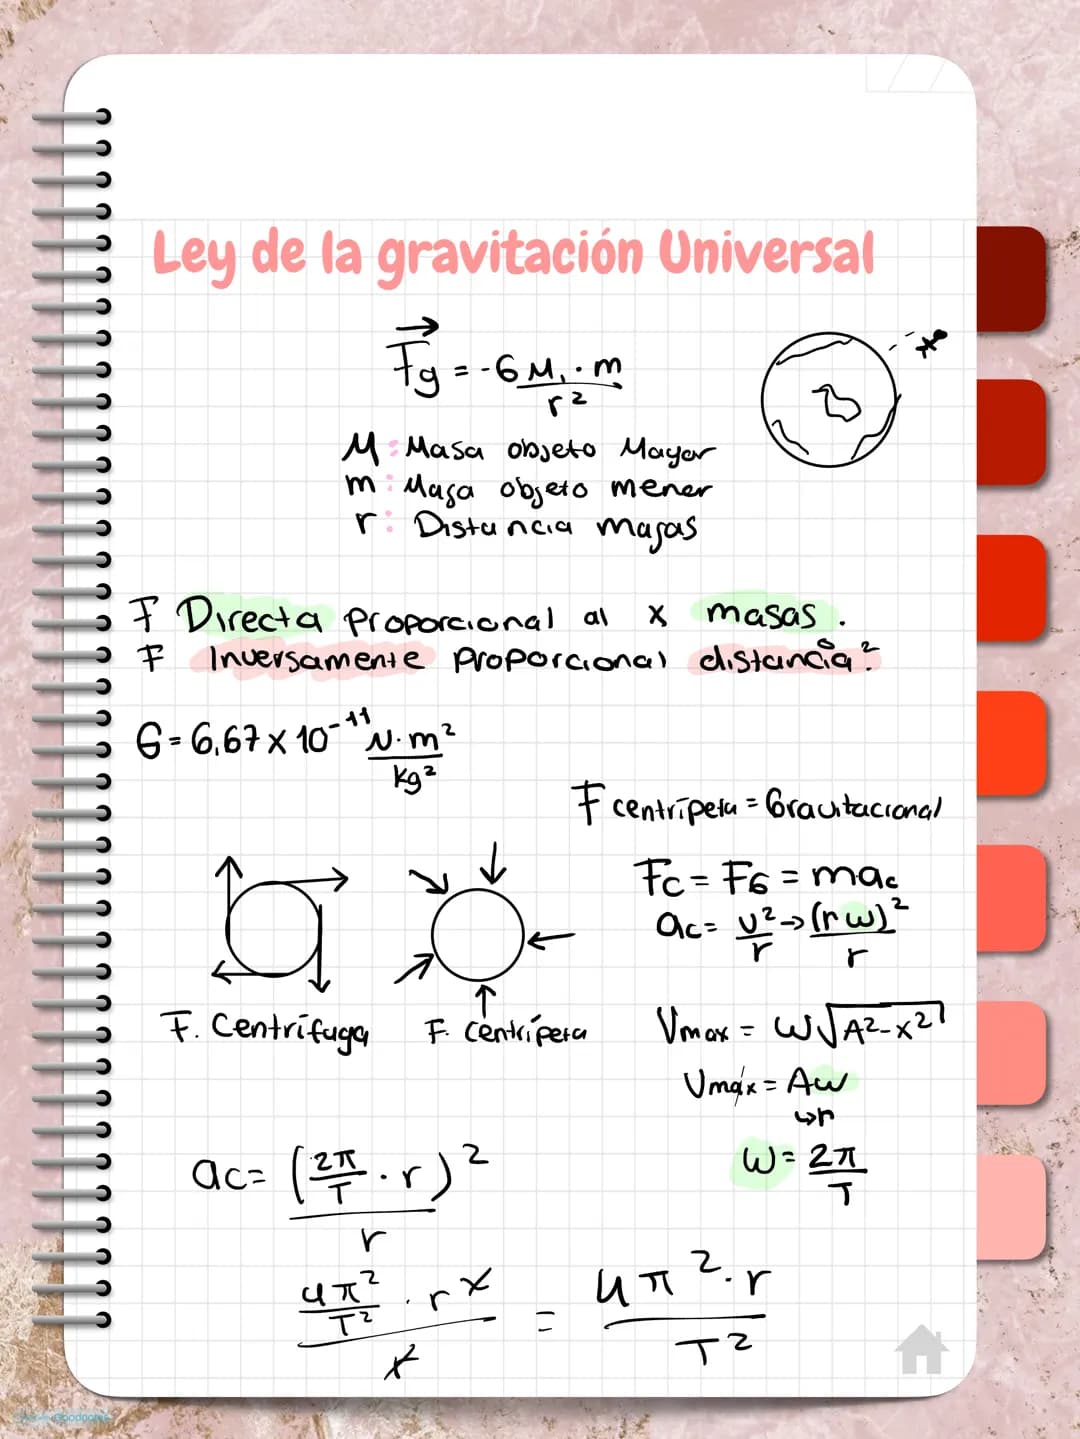 Ley de la gravitación Universal
Fg = -G M₁ · m
r²
M: Masa objeto Mayor
m: Masa objeto menor
r: Distancia masas
F Directa proporcional al x masas.
F Inversamente proporcional distancia².
G = 6,67 x 10⁻¹¹ N·m²
kg²
F centrípeta = Gravitacional
Fc = FG = mac
ac = v² → (r w)²
r r
F. Centrífuga F. Centrípeta
Vmax = w√A²-x²
Vmáx = Aw
↳r
w = 2π
T
ac = (2π/T · r)²
r
4π²/T² · r² = 4π² · r
r T²